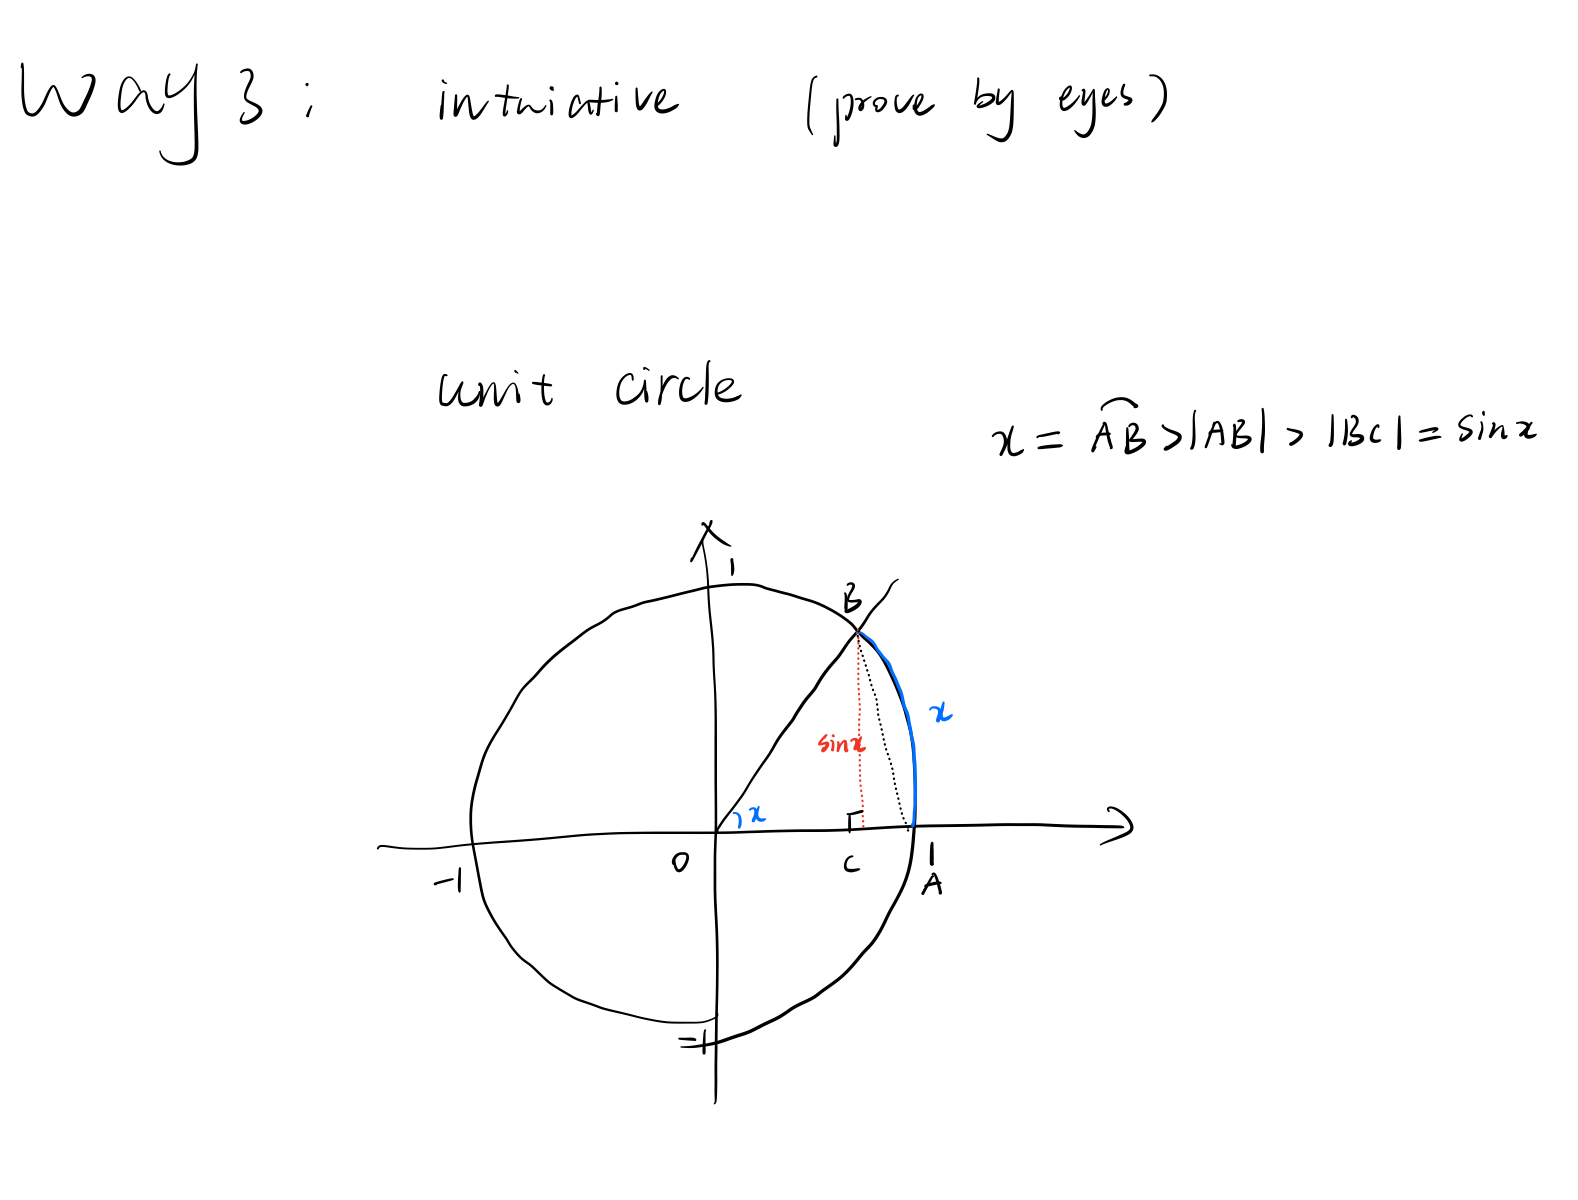 Way 3: intuiative (prove by eyes)
unit circle
x = A͡B > |AB| > |BC| = sin x
1
B
x
sin x
x
O
C
1
A
-1
-1